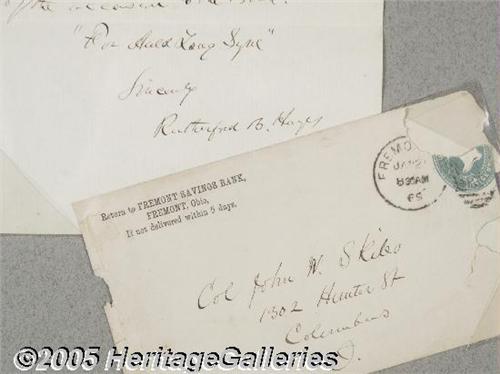 "the occasion
"For Auld Lang Syne"
Sincerely
Rutherford B. Hayes
Return to FREMONT SAVINGS BANK,
FREMONT, Ohio,
If not delivered within 5 days.
FREMO
JAN
8 30 AM
Col John W. Skiles
1302 Hunter St
Columbus
O.
©2005 HeritageGalleries